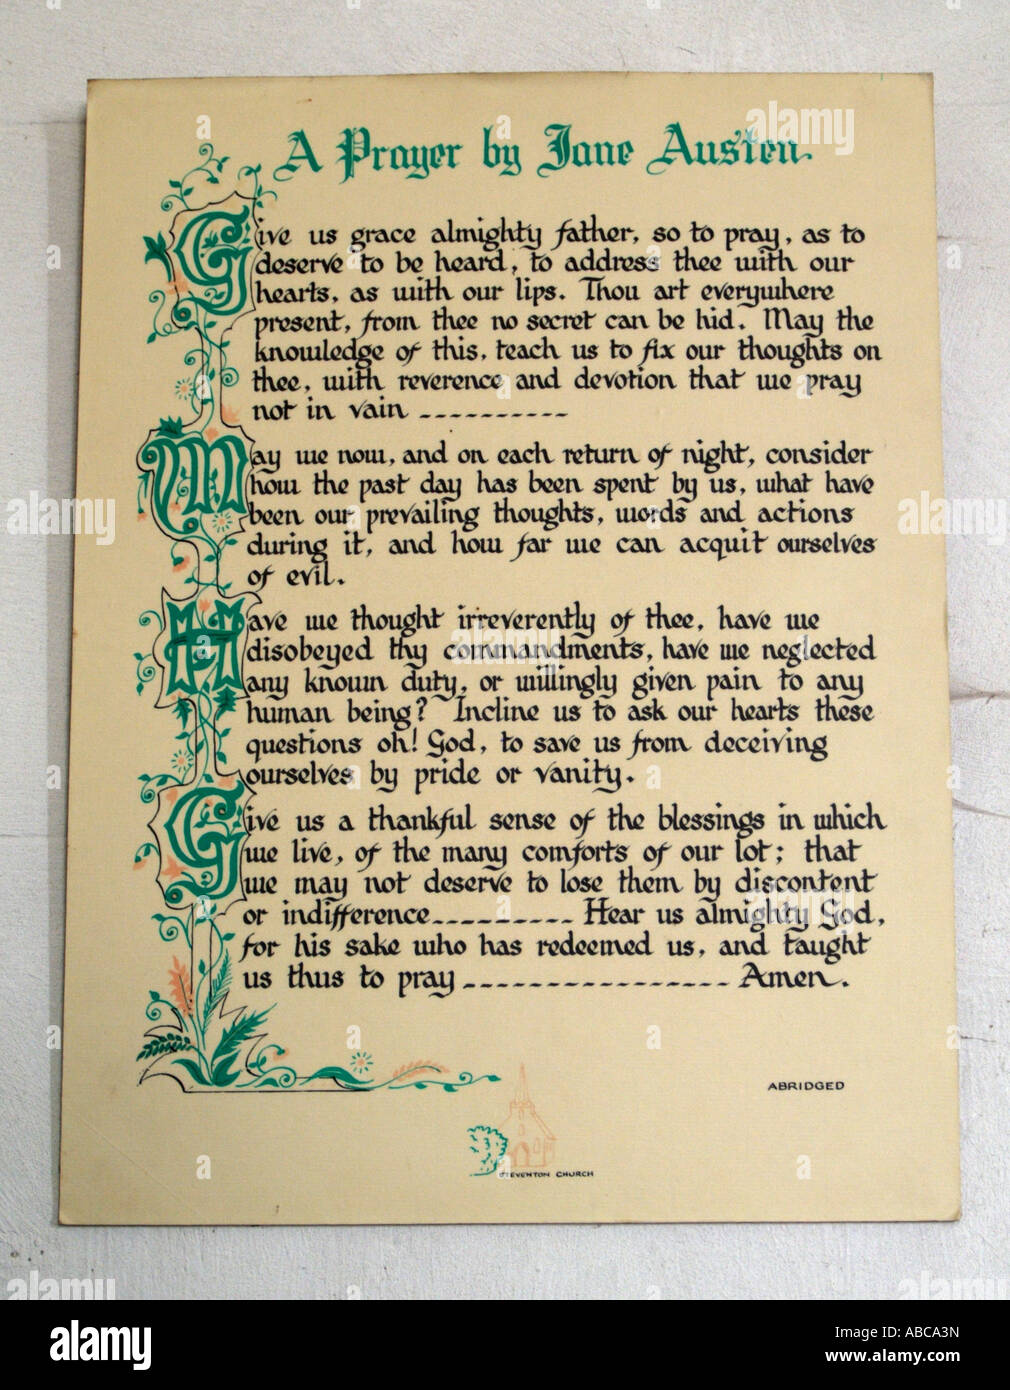 A Prayer by Jane Austen.
Give us grace almighty father, so to pray, as to
deserve to be heard, to address thee with our
hearts, as with our lips. Thou art everywhere
present, from thee no secret can be hid. May the
knowledge of this, teach us to fix our thoughts on
thee, with reverence and devotion that we pray
not in vain ----------
May we now, and on each return of night, consider
how the past day has been spent by us, what have
been our prevailing thoughts, words and actions
during it, and how far we can acquit ourselves
of evil.
Have we thought irreverently of thee, have we
disobeyed thy commandments, have we neglected
any known duty, or willingly given pain to any
human being? Incline us to ask our hearts these
questions oh! God, to save us from deceiving
ourselves by pride or vanity.
Give us a thankful sense of the blessings in which
we live, of the many comforts of our lot; that
we may not deserve to lose them by discontent
or indifference--------- Hear us almighty God,
for his sake who has redeemed us, and taught
us thus to pray ----------------- Amen.
ABRIDGED
STEVENTON CHURCH
alamy
Image ID: ABCA3N
www.alamy.com